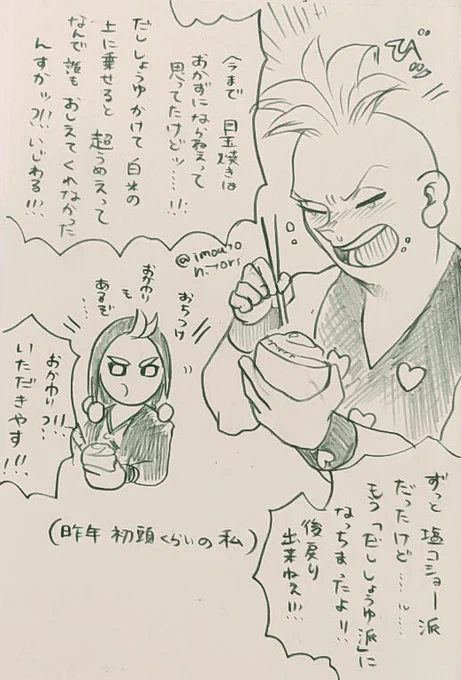 びッ
今まで 目玉焼きは
おかずにならねえって
思ってたけどッ……!!
だししょうゆかけて 白米の
上に乗せると 超うめえって
なんで誰も おしえてくれなかった
んすかッ?!! いじわる!!!
@imouto
n_tori
おちつけ
おかわり
も
あるぞ
おかわりッ!!
いただきやす!!!
ずっと 塩コショー派
だったけど……
もう「だししょうゆ派」に
なっちまったよ!!
後戻り
出来ねえ!!!
(昨年 初頭くらいの 私)